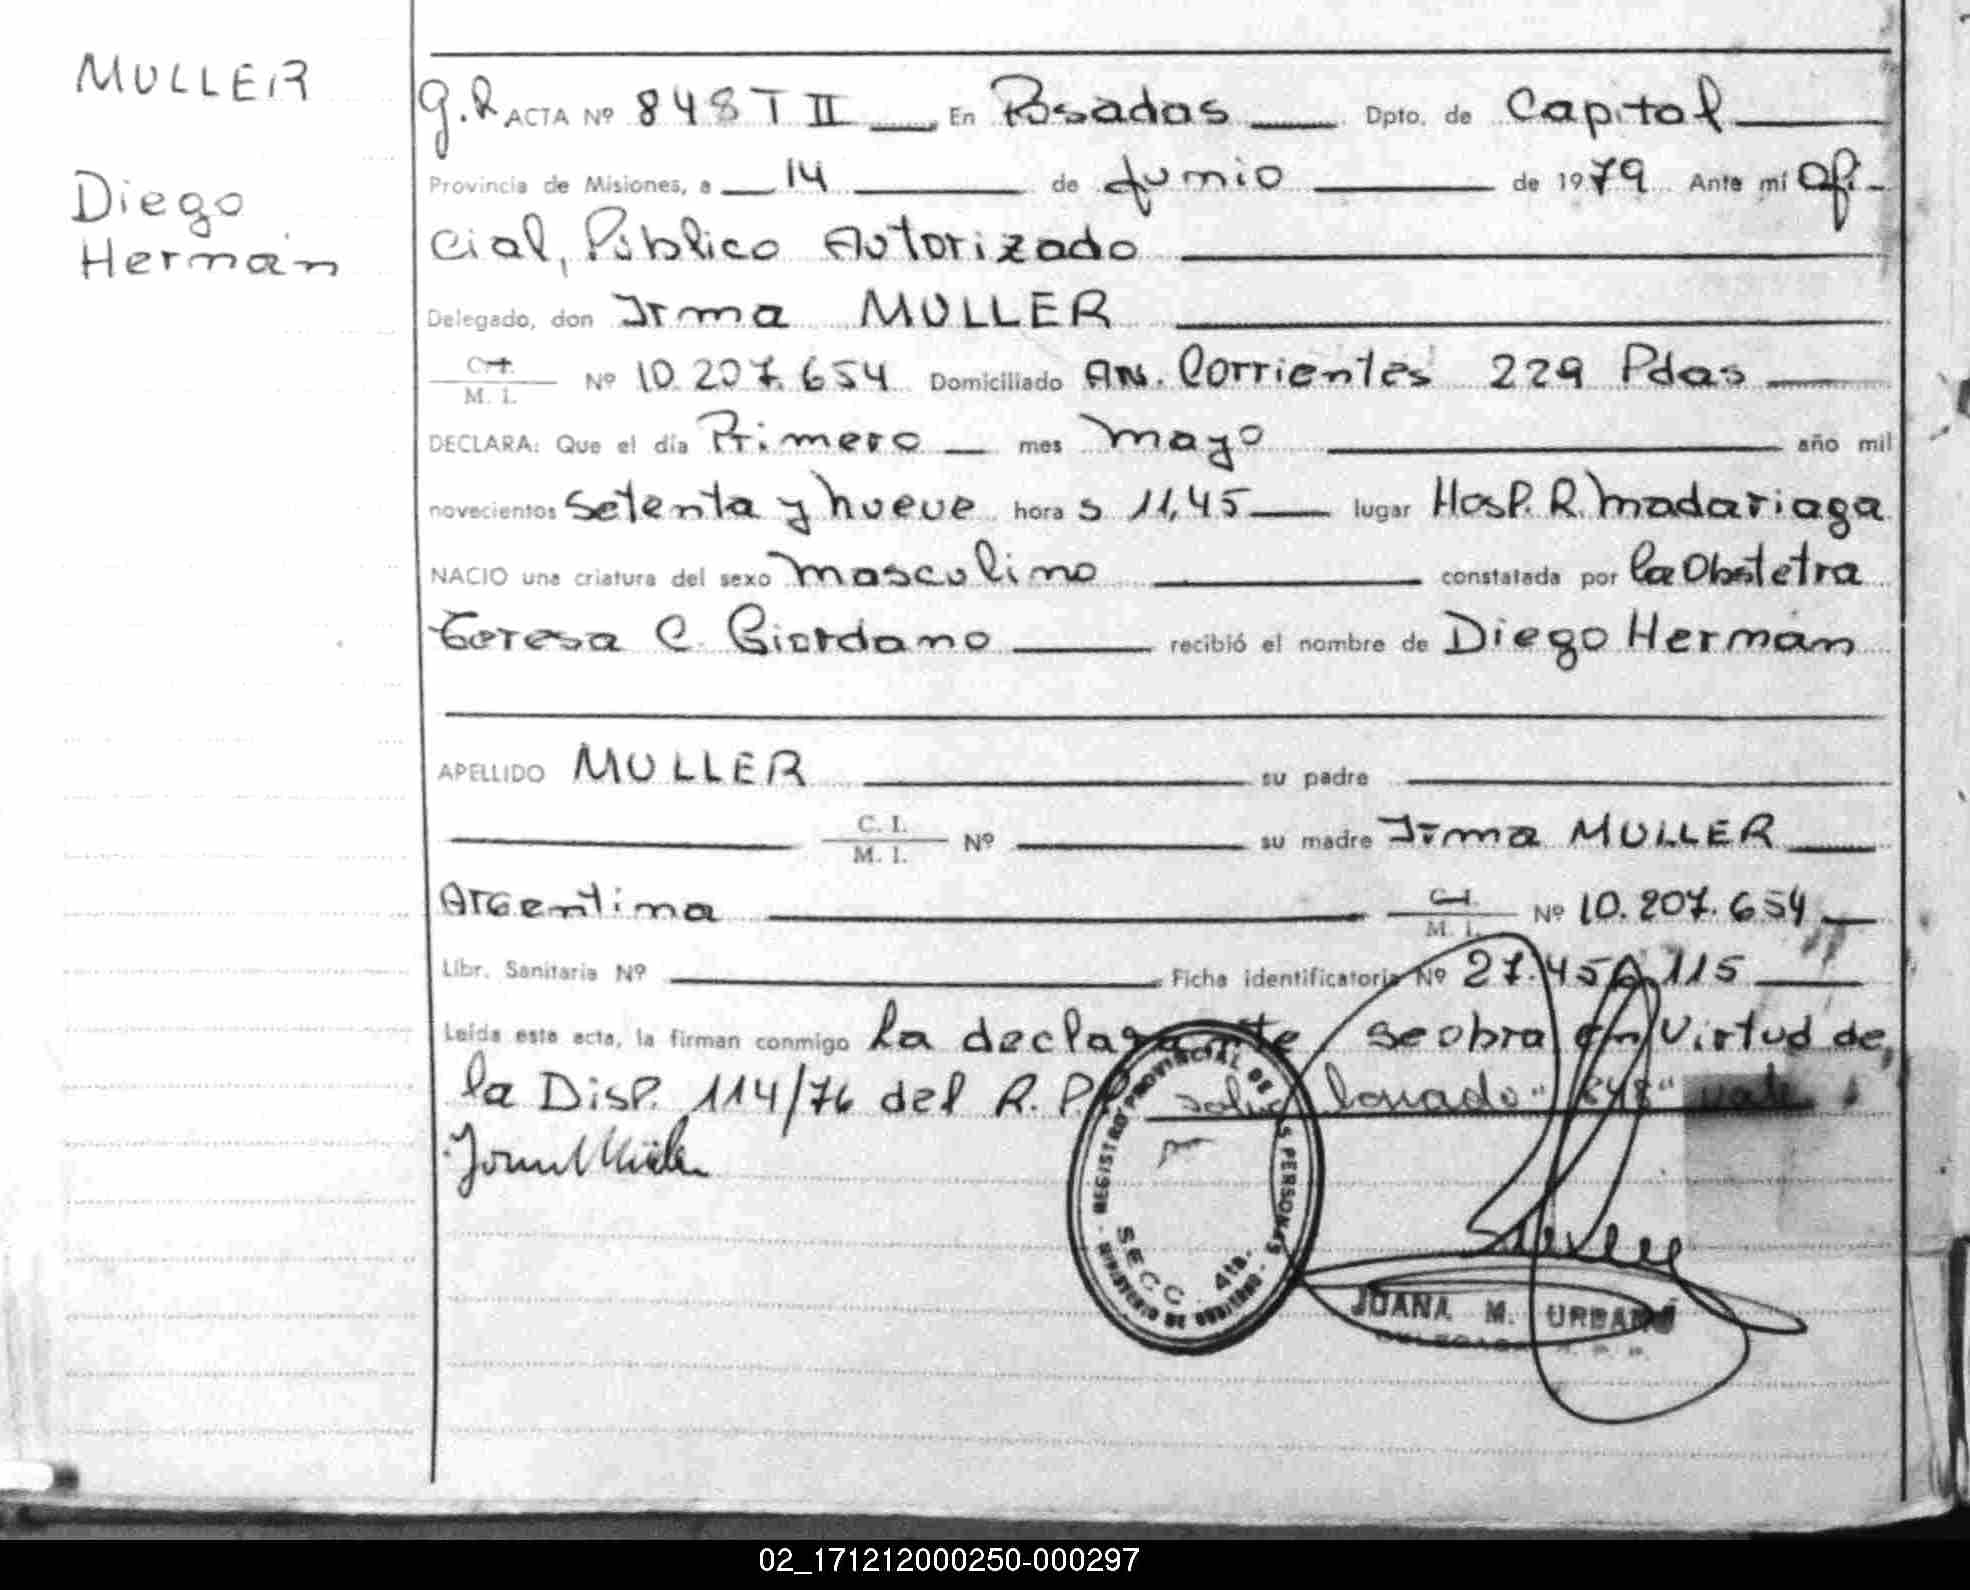 MULLER
Diego
Hernán
G.R ACTA Nº 848 T II En Posadas Dpto. de Capital
Provincia de Misiones, a 14 de Junio de 1979 Ante mí Ofi-
cial, Público Autorizado
Delegado, don Irma MULLER
C.I. M. I. Nº 10.207.654 Domiciliado AN. Corrientes 229 Pdas
DECLARA: Que el día Primero mes mayo año mil
novecientos setenta y nueve hora s 11,45 lugar Hosp. R. Madariaga
NACIO una criatura del sexo masculino constatada por la Obstetra
Teresa C. Giordano recibió el nombre de Diego Hernán
APELLIDO MULLER su padre
C. I. M. I. Nº su madre Irma MULLER
Argentina C.I. M. I. Nº 10.207.654
Libr. Sanitaria Nº Ficha identificatoria Nº 27.450.115
Leída este acta, la firman conmigo la declarante se obra en virtud de
la Disp. 114/76 del R.P.P. vale
REGISTRO PROVINCIAL DE LAS PERSONAS
SECC. 4ta.
MINISTERIO DE GOBIERNO
JUANA M. URBANO
02_171212000250-000297